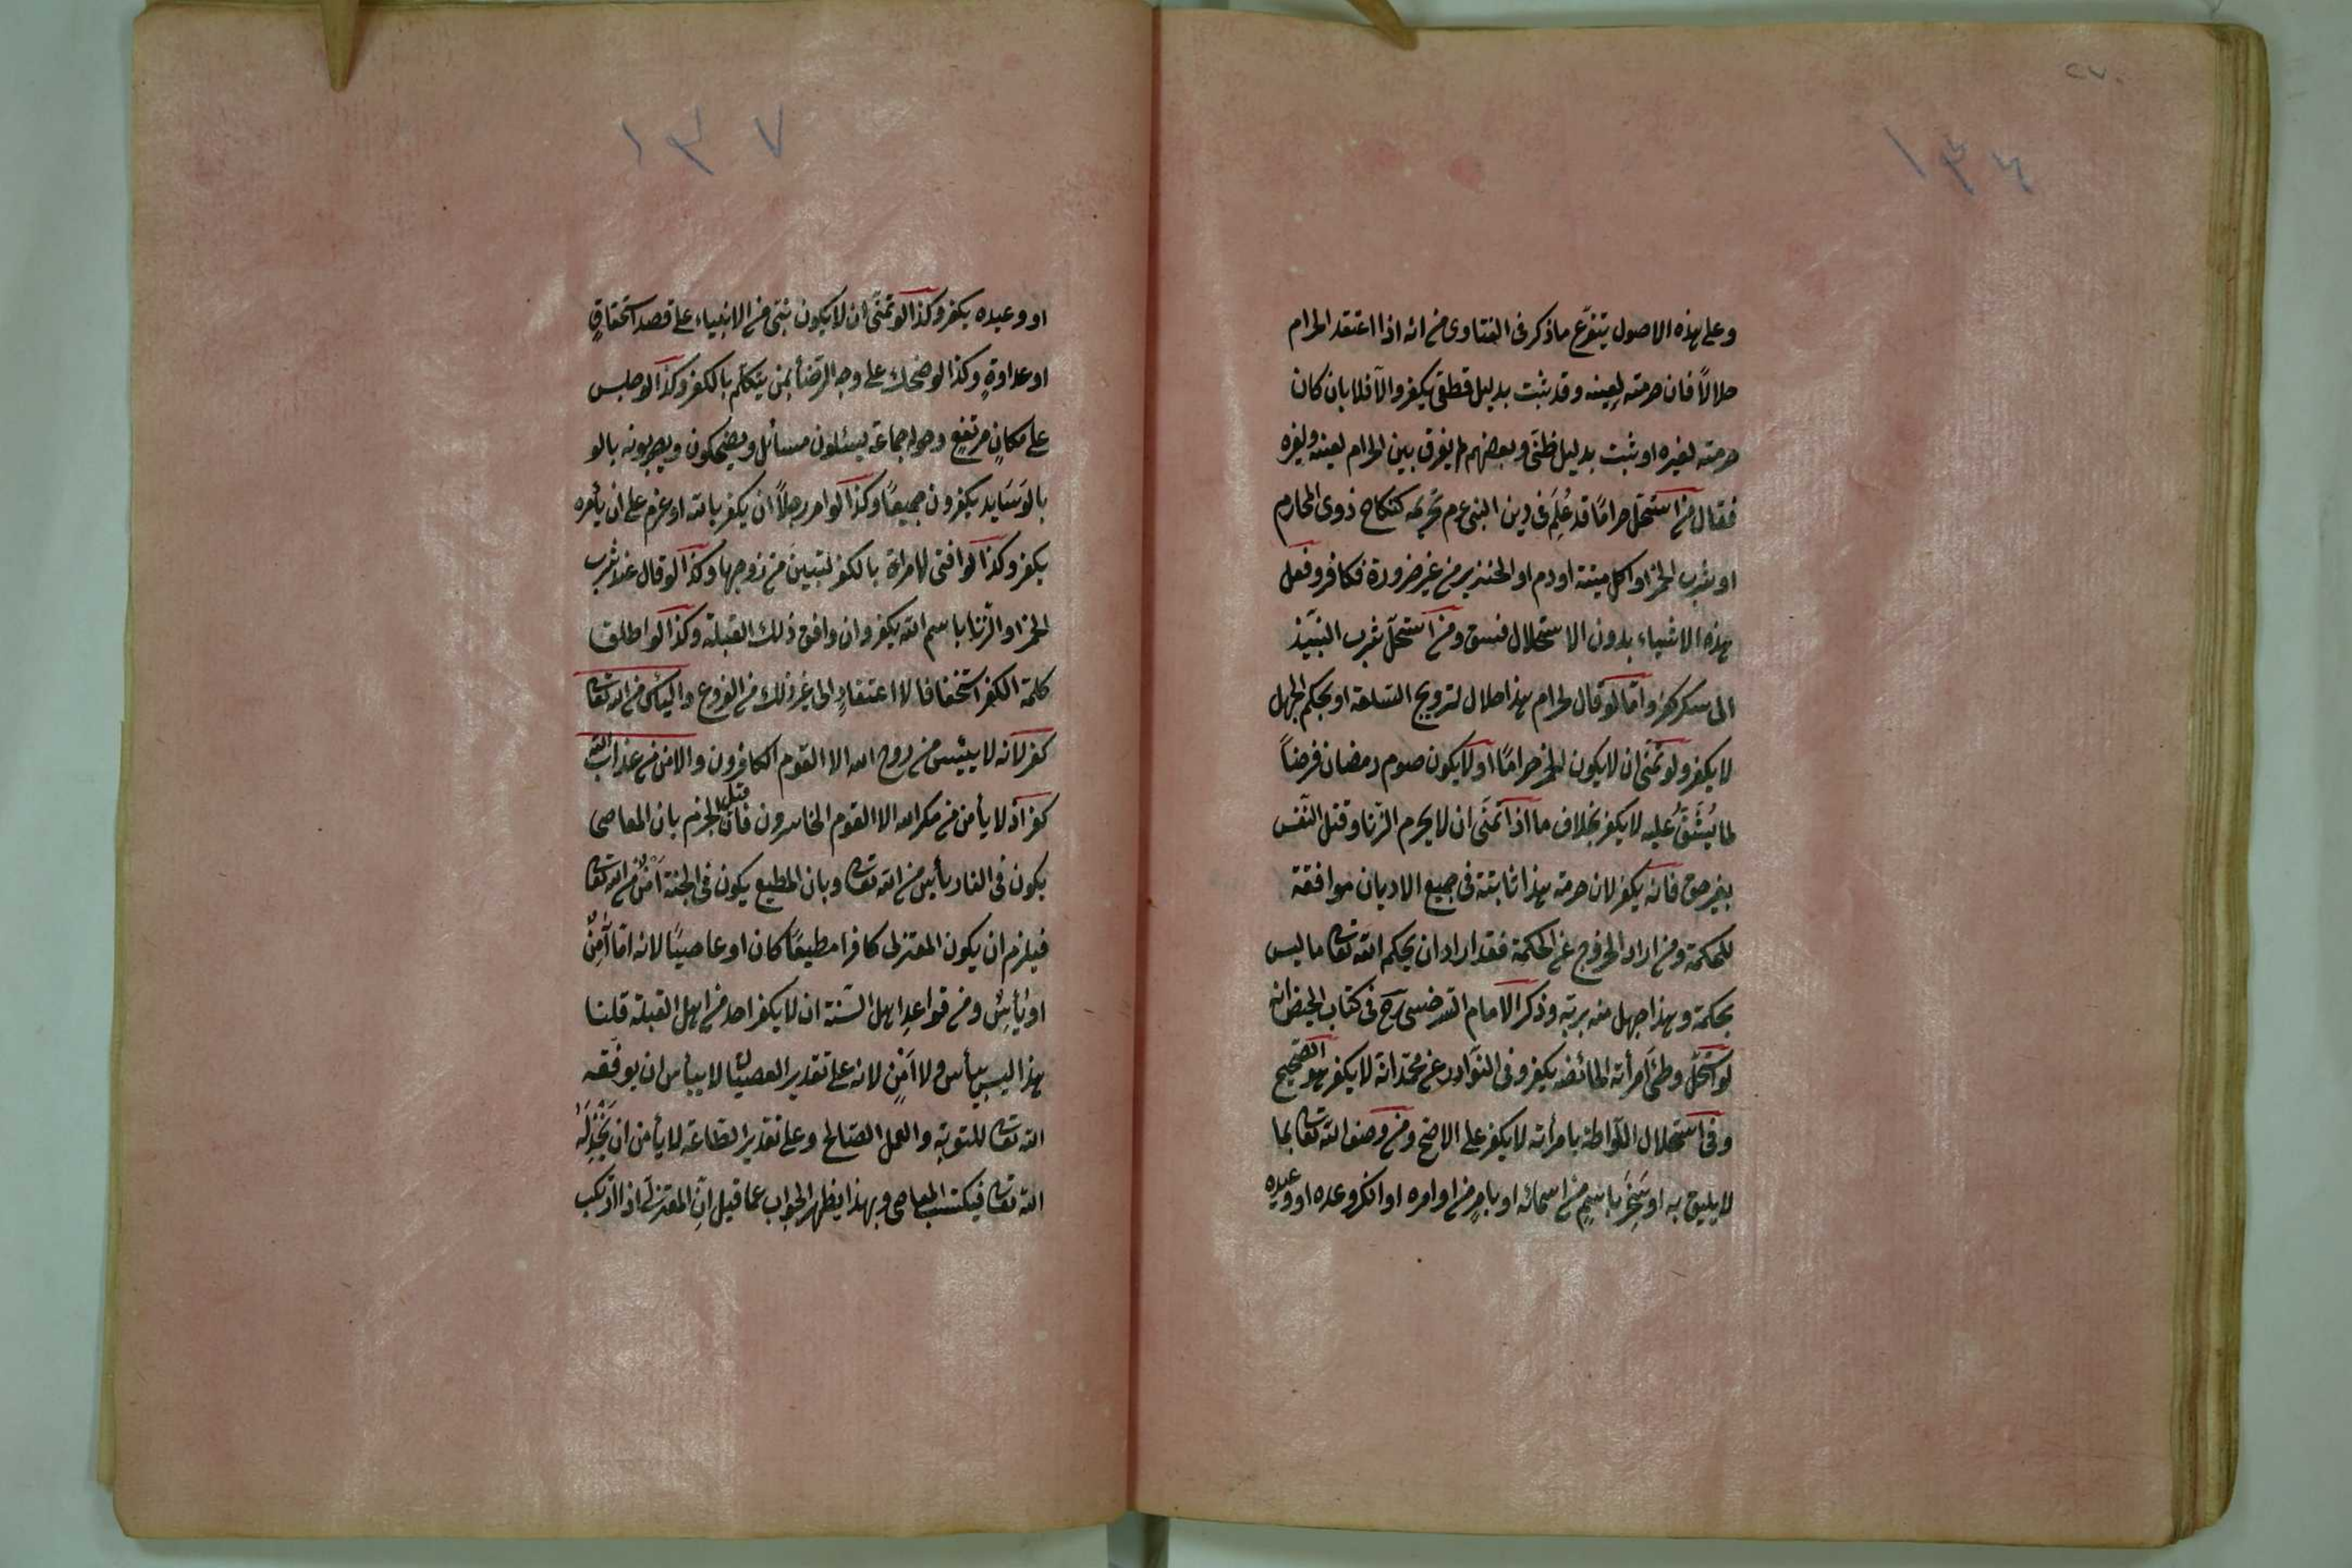 ٢٧٠
١٣٦
وعلى هذه الاصول يتفرّع ماذكر فى الفتاوى من انه اذا اعتقد الحرام
حلالاً فان حرمته لعينه وقد ثبت بدليل قطعى يكفر والّا فلا بان كان
حرمته لغيره او ثبت بدليل ظنّى وبعضهم لم يفرق بين الحرام لعينه ولغيره
فقال من استحلّ حرامًا قد عُلِمَ فى دين النبى عم تحريمه كنكاح ذوى المحارم
او شرب الخمر او اكل ميتة او دم او الخنزير من غير ضرورة فكافر وفعل
هذه الاشياء بدون الاستحلال فسق ومن استحلّ شرب النبيّذ
الى سكر كفر وامّا لو قال لحرام هذا حلال لترويج السّلعة او بحكم الجهل
لا يكفر ولو تمنّى ان لا يكون الخمر حرامًا او لا يكون صوم رمضان فرضاً
لما يُشَقُّ عليه لا يكفر بخلاف ما اذا تمنّى ان لا يحرم الزنا وقتل النّفس
بغير حق فانه يكفر لان حرمة هذا ثابتة فى جميع الاديان موافقة
للحكمة ومن اراد الخروج عن الحكمة فقد اراد ان يحكم الله تعالى ما ليس
بحكمة وهذا جهل منه بربّه وذكر الامام السّرخسى رح فى كتاب الحيض انه
لو استحلّ وطئ امرأته الحائضه يكفر وفى النّوادر عن محمّد انه لا يكفر هو الصّحيح
وفى استحلال اللّواطة بامرأته لا يكفر على الاصّح ومن وصف الله تعالى بما
لا يليق به او سَخِرَ باسمٍ من اسمائه او بامرٍ من اوامره او انكر وعده او وعيده
١٣٧
او وعيده يكفر وكذا لو تمنّى ان لا يكون نبى من الانبياء على قصد استخفافٍ
او عداوةٍ وكذا لو ضحك على وجه الرّضأ بمن يتكلّم بالكفر وكذا لو جلس
على مكانٍ مرتفعٍ وحوله جماعة يسئلون مسائل ويضحكون ويضربونه بالو
بالوَسَايد يكفرون جميعًا وكذا لو امر رجلاً ان يكفر بالله او عزم على ان يأمره
يكفر وكذا لو افتى لامرأة بالكفر لتبينَ من زوجها وكذا لو قال عند شرب
الخمر او الزّنا باسم الله يكفر وان وافق ذلك القبلة وكذا لو اطلق
كلمة الكفر استخفافا لا اعتقادٍ الى غير ذلك من الفروع واليأس من الله تعالى
كفر لانه لا ييئس من روح الله الا القوم الكافرون والامن من عذاب الله
كفر اذ لا يأمن من مكر الله الا القوم الخاسرون فان قيل الجزم بان المعاصى
يكون فى النار يأس من الله تعالى وبان المطيع يكون فى الجنة اَمْنٌ من الله تعالى
فيلزم ان يكون المعتزلى كافرا مطيعًا كان او عاصيًا لانه امّا آمِنٌ
او يأسٌ ومن قواعد اهل السّنة ان لا يكفر احد من اهل القبلة قلنا
هذا ليس بيأس ولا اَمْنٍ لانه على تقدير العصيان لا ييأس ان يوفّقه
الله تعالى للتوبة والعمل الصّالح وعلى تقدير الطاعة لا يأمن ان يَخْذِلَهُ
الله تعالى فيكتسب المعاصى وبهذا يظهر الجواب عما قيل انّ المعتزلى اذا ارتكب